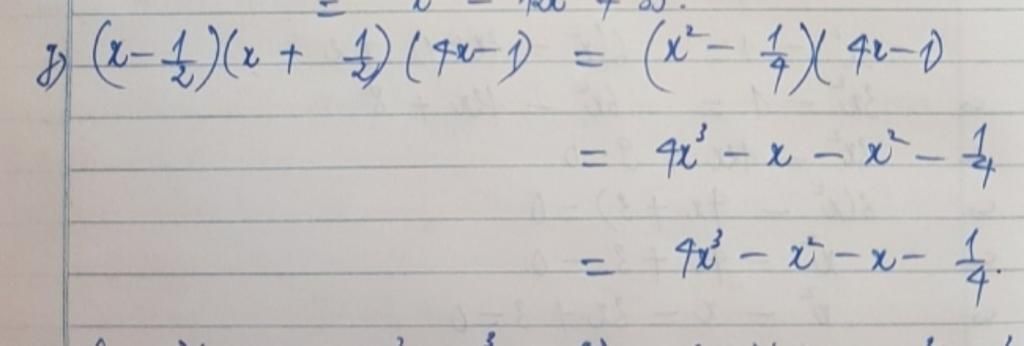 g) (x - 1/2)(x + 1/2)(4x - 1) = (x² - 1/4)(4x - 1)
= 4x³ - x - x² - 1/4
= 4x³ - x² - x - 1/4.